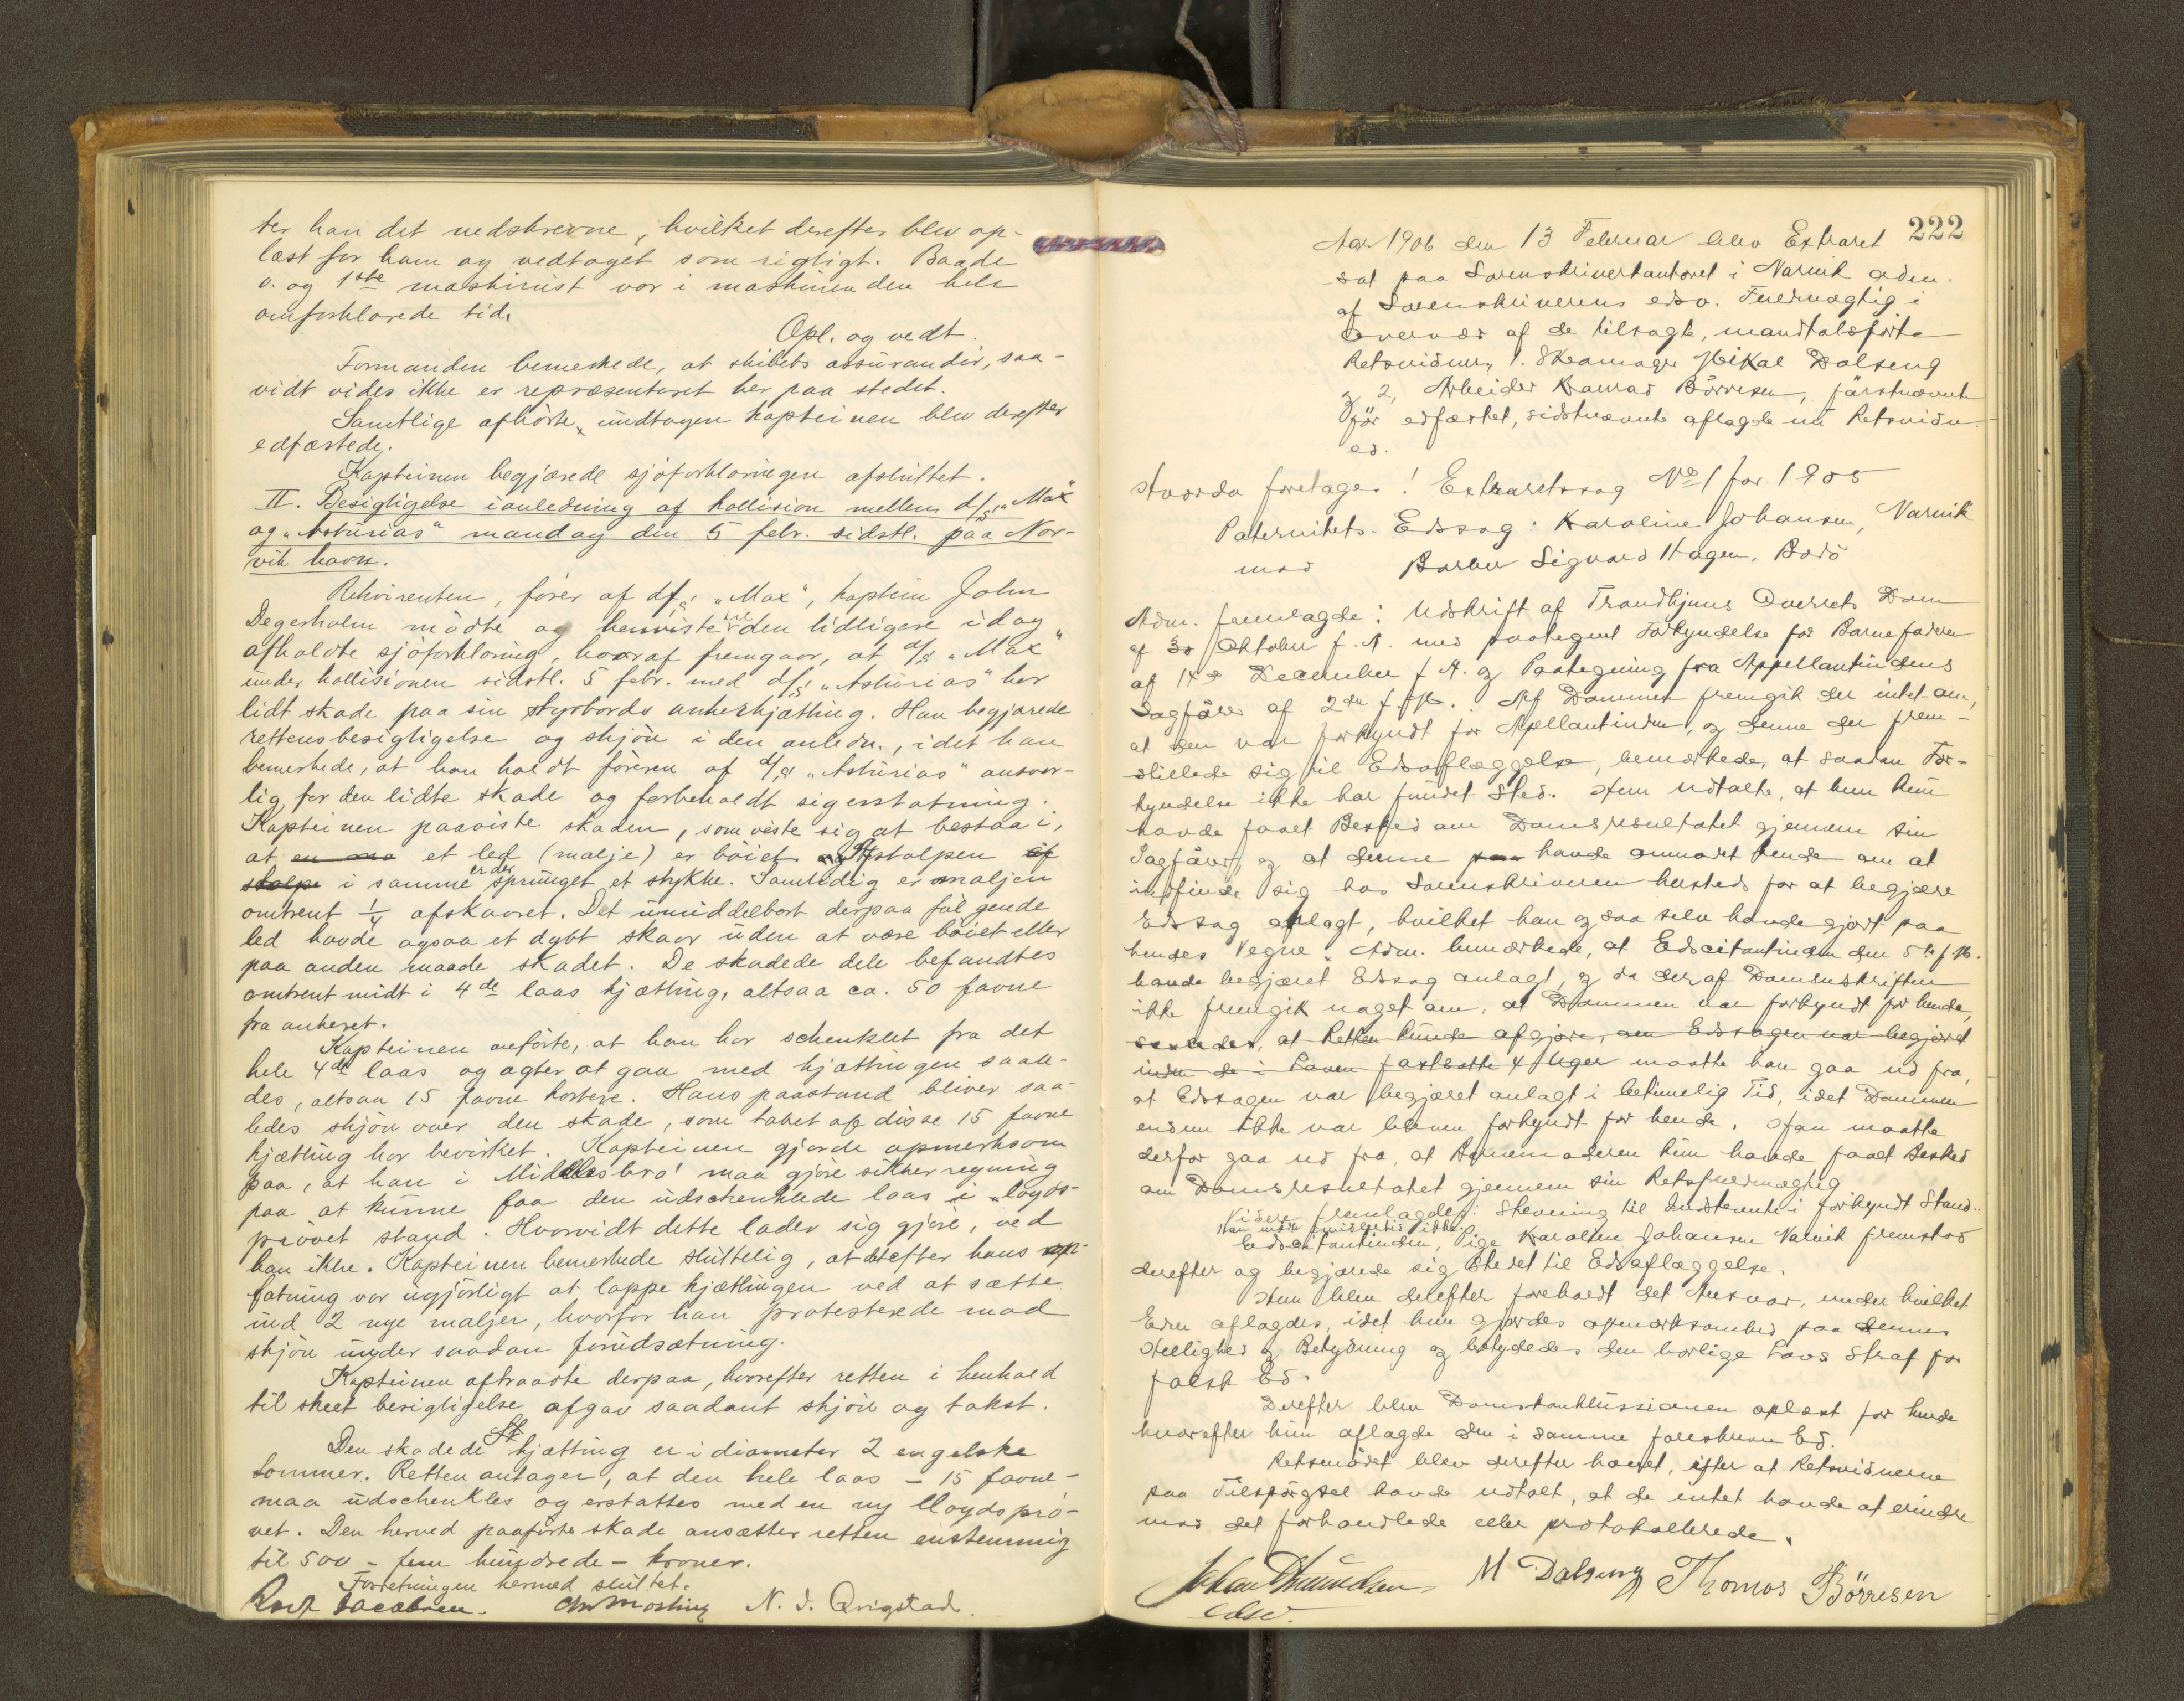 ter han det nedskrevne, hvilket derefter blev op-
læst for ham og vedtaget som rigtigt. Baade
o. og 1ste maskinist var i maskinen den hele
omforklarede tid.
Opl. og vedt.
Formanden bemerkede, at skibets assurandør, saa-
vidt vides ikke er repræsenteret her paa stedet.
Samtlige afhörte, undtagen kapteinen blev derefter
edfæstede.
Kapteinen begjærede sjöforklaringen afsluttet.
II. Besigtigelse i anledning af kollision mellem d/s "Max"
og "Asturias" mandag den 5 febr. sidstl. paa Nar-
vik havn.
Rekvirenten, förer af d/s "Max", kaptein John
Degerholm mödte og henviste til den tidligere idag
afholdte sjöforklaring, hvoraf fremgaar, at d/s "Max"
under kollisionen sidstl. 5 febr. med d/s "Asturias" har
lidt skade paa sin styrbords ankerkjætting. Han begjærede
rettens besigtigelse og skjön i den anledn., idet han
bemerkede, at han holdt föreren af d/s "Asturias" ansvar-
lig for den lidte skade og forbeholdt sig erstatning.
Kapteinen paaviste skaden, som viste sig at bestaa i,
at en ma et led (malje) er böiet og stolpen af
stolpe i samme er der sprunget et stykke. Samtidig er maljen
omtrent 1/4 afskaaret. Det umiddelbart derpaa fölgende
led havde ogsaa et dybt skaar uden at være böiet eller
paa anden maade skadet. De skadede dele befandtes
omtrent midt i 4de laas kjætting, altsaa ca. 50 favne
fra ankeret.
Kapteinen anförte, at han har schenklet fra det
hele 4de laas og agter at gaa med kjættingen saale-
des, altsaa 15 favne kortere. Hans paastand bliver saa-
ledes skjön over den skade, som tabet af disse 15 favne
kjætting har bevirket. Kapteinen gjorde opmerksom
paa, at han i Middlesbro' maa gjöre sikker regning
paa at kunne faa den udschenklede laas i "loyds-
prövet stand. Hvorvidt dette lader sig gjöre, ved
han ikke. Kapteinen bemerkede sluttelig, at det efter hans op-
fatning var ugjörligt at lappe kjættingen ved at sætte
ind 2 nye maljer, hvorfor han protesterede mod
skjön under saadan forudsætning.
Kapteinen aftraadte derpaa, hvorefter retten i henhold
til skeet besigtigelse afgav saadant skjön og takst.
Den skadede kjætting er i diameter 2 engelske
tommer. Retten antager, at den hele laas – 15 favne –
maa udschenkles og erstattes med en ny lloydsprö-
vet. Den herved paaförte skade ansætter retten enstemmig
til 500 – fem hundrede – kroner.
Forretningen hermed sluttet.
Jacobsen. Chr Mosling N. J. Qvigstad.
222
Aar 1906 den 13 Februar blev Extraret
sat paa Sorenskriverkontoret i Narvik adm.
af Sorenskriverens edsv. Fuldmægtig i
Overvær af de tilsagte, mandtalsførte
Retsvidner, 1. Skomager Mikal Dalseng
og 2, Arbeider Konrad Börresen, förstnævnte
för edfæstet, sidstnævnte aflagde nu Retsvidne
ed.
Hvorda foretages: Extraretssag No 1 for 1905
Paternitets-Edssag: Karoline Johansen, Narvik
mod Barber Sigvard Hagen, Bodö
Adm. fremlagde: Udskrift af Trondhjems Overrets Dom
af 30 Oktober f. A. med paategnet Forkyndelse for Barnefaderen
af 14de December f A. og Paategning fra Appellantindens
Sagförer af 2den f. M. Af Dommen fremgik der intet om,
at den var forkyndt for Apellantinden, og denne der frem-
stillede sig til Edsaflæggelse, bemærkede, at saadan For-
kyndelse ikke har fundet Sted. Hun udtalte, at hun kun
havde faaet Besked om Domsresultatet gjennem sin
Sagförer, og at denne havde anmodet hende om at
indfinde sig hos Sorenskriveren hersteds for at begjære
Edssag anlagt, hvilket han og saa selv havde gjort paa
hendes Vegne. Adm. bemærkede, at Edscitantinden den 5te f. M.
havde begjæret Edssag anlagt, og da der af Domsudskriften
ikke fremgik noget om, at Dommen var forkyndt for hende,
saaledes, at Retten kunde afgjøre, om Edssagen var begjæret
inden de i Loven fastsatte 4 Uger maatte han gaa ud fra,
at Edssagen var begjæret anlagt i betimelig Tid, idet Dommen
endnu ikke var bleven forkyndt for hende. Han maatte
derfor gaa ud fra, at Barnemoderen kun havde faaet Besked
om Domsresultatet gjennem sin Retsfuldmægtig
Videre fremlagdes: Stevning til Indstevnte i forkyndt Stand.
Han mödte imidlertid ikke.
Edscitantinden, Pige Karoline Johansen Narvik fremstod
derefter og begjærede sig stedet til Edsaflæggelse.
Hun blev derefter foreholdt det Ansvar, under hvilket
Eden aflagdes, idet hun gjordes opmærksomhed paa dennes
Hellighed og Betydning og betydedes den borlige Lovs Straf for
falsk Ed.
Derefter blev Domskonklussionen oplæst for hende
hvorefter hun aflagde den i samme foreskrevne Ed.
Retsmödet blev derefter hævet, efter at Retsvidnerne
paa Tilspörgsel havde udtalt, at de intet havde at erindre
mod det forhandlede eller protokollerede.
M Dalseng Thomas Börresen
edsv.